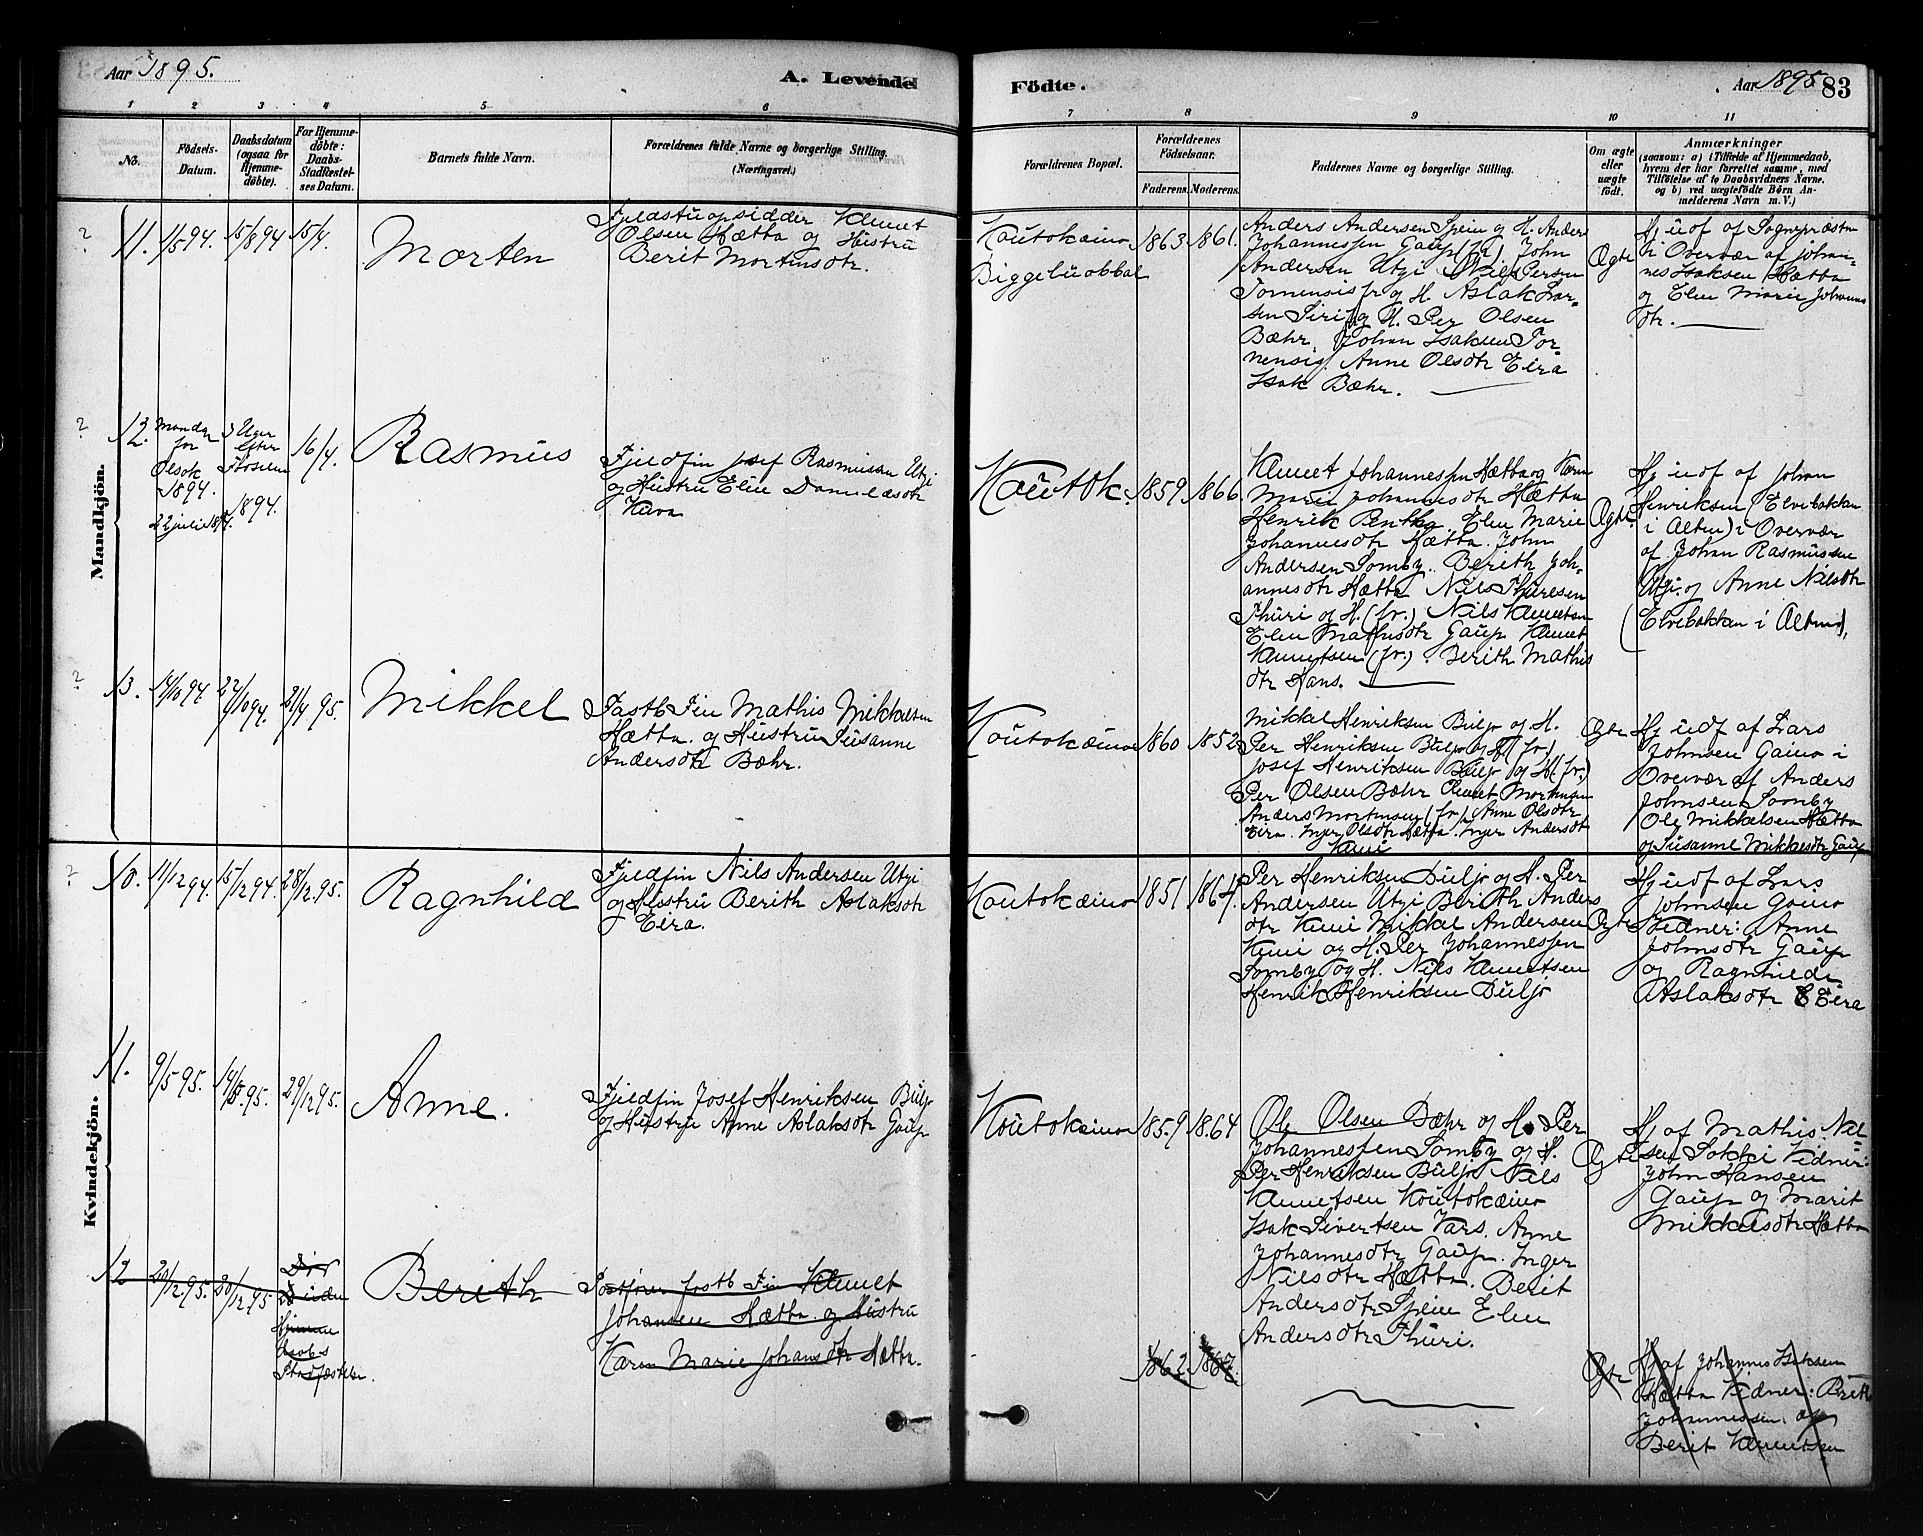 Aar 1895.
A. Levende
Födte.
Aar 1895
83
1 2 3 4 5 6 7 8 9 10 11
No.
Födsels-
Datum.
Daabsdatum
(ogsaa for
Hjemme-
döbte).
For Hjemme-
döbte:
Daabs-
Stadfæstel-
ses Datum.
Barnets fulde Navn.
Forældrenes fulde Navne og borgerlige Stilling.
(Næringsvei.)
Forældrenes Bopæl.
Forældrenes
Födselsaar.
Faderens. Moderens.
Faddernes Navne og borgerlige Stilling.
Om ægte
eller
uægte
födt.
Anmærkninger
(saasom: a) i Tilfælde af Hjemmedaab,
hvem der har forrettet samme, med
Tilföielse af to Daabsvidners Navne,
og b) ved uægtefödte Börn An-
melderens Navn m. V.)
Mandkjön.
?
11.
11/5 94.
15/8 94
15/4.
Morten
Fjeldstuopsidder Klemet
Olsen Hætta og Hustru
Berit Mortensdtr.
Koutokeino
Biggeluobbal
1863. 1861.
Anders Andersen Spein og H. Anders
Johannessen Gaup (fr) John
Andersen Utzi Nils Persen
Tornensis fr og H. Aslak Lar-
sen Siri og H. Per Olsen
Bæhr. Johan Isaksen Tor-
nensis. Anne Olsdtr Eira
Isak Bæhr.
Ægte
Hj udf af Sognepræsten
i Overvær af Johan-
nes Isaksen Hætta
og Elen Marie Johannes
dtr.
?
12.
Mandag
før
Olsok
1894.
22 juli 1894.
3 Uger
efter
1894.
16/4.
Rasmus
Fjeldfin Josef Rasmussen Utzi
og Hustru Elen Danielsdtr
Kava
Koutok. 1859. 1866.
Klemet Johannessen Hætta og Karen
Marie Johannesdtr Hætta
Henrik Penthe. Elen Marie
Johannesdtr Hætta. John
Andersen Somby. Berith Joh-
annesdtr Hætta Nils Thuresen
Thuri og H. (fr.) Nils Klemetsen
Elen Mathisdtr Gaup. Klemet
Klemetsen (fr.). Berith Mathis
dtr Hans.
Ægte.
Hj udf af Johan
Henriksen (Elvebakken
i Alten) i Overvær
af Johan Rasmussen
Utzi og Anne Nilsdtr
(Elvebakken i Alten),
?
13.
14/10 94.
27/10 94.
21/4 95.
Mikkel
Fastb Fin Mathis Mikkelsen
Hætta. og Hustru Susanne
Andersdtr Bæhr.
Koutokeino 1860 1852
Mikkel Henriksen Buljo og H.
Per Henriksen Buljo og H (fr.)
Josef Henriksen Buljo og H. (fr.)
Per Olsen Bæhr Klemet Mortensen
Anders Mortensen (fr.) Anne Olsdtr
Eira. Inger Olsdtr Hætta. Inger Andersdtr
Kemi
Ægte
Hj udf af Lars
Johnsen Gaino i
Overvær af Anders
Johnsen Somby
Ole Mikkelsen Hætta
og Susanne Mikkelsdtr Gaup
Kvindekjön.
?
10.
11/12 94.
15/12 94.
28/12. 95.
Ragnhild
Fjeldfin Nils Andersen Utzi
og Hustru Berith Aslaksdtr
Eira.
Koutokeino 1851 1864.
Per Henriksen Buljo og H. Per
Andersen Utzi Berith Anders
dtr Kemi Mikkel Andersen
Kemi og H. Per Johannessen
Somby og H. Nils Klemetsen
Henrik Henriksen Buljo
Ægte
Hj udf af Lars
Johnsen Gaino
Vidner: Anne
Johnsdtr Gaup
og Ragnhilde
Aslaksdtr Eira
11.
9/5 95.
19/5 95.
29/12 95.
Anne.
Fjeldfin Josef Henriksen Buljo
og Hustru Anne Aslaksdtr Gaup
Koutokeino 1859 1864
Ole Olsen Bæhr og H. Per
Johannessen Somby og H.
Per Henriksen Buljo Nils
Klemetsen Koutokeino
Isak Sivertsen Vars. Anne
Johannesdtr Gaup. Inger
Nilsdtr Hætta. Berit
Andersdtr Spein Elen
Andersdtr Thuri.
Ægte
Hj af Mathis Nil
sen Sokki Vidner:
John Hansen
Gaup og Marit
Mikkelsdtr Hætta
12
20/12. 95.
20/12. 95
Død
uden
Hjemme
daabs
Stadfæstelse.
Berith
fastb Fin Klemet
Johansen Hætta og Hustru
Karen Marie Johansdtr Hætta.
1862. 1867.
Ægte
Hj af Johannes Isaksen
Hætta Vidner: Berith
Johannessen og
Berit Klemetsen